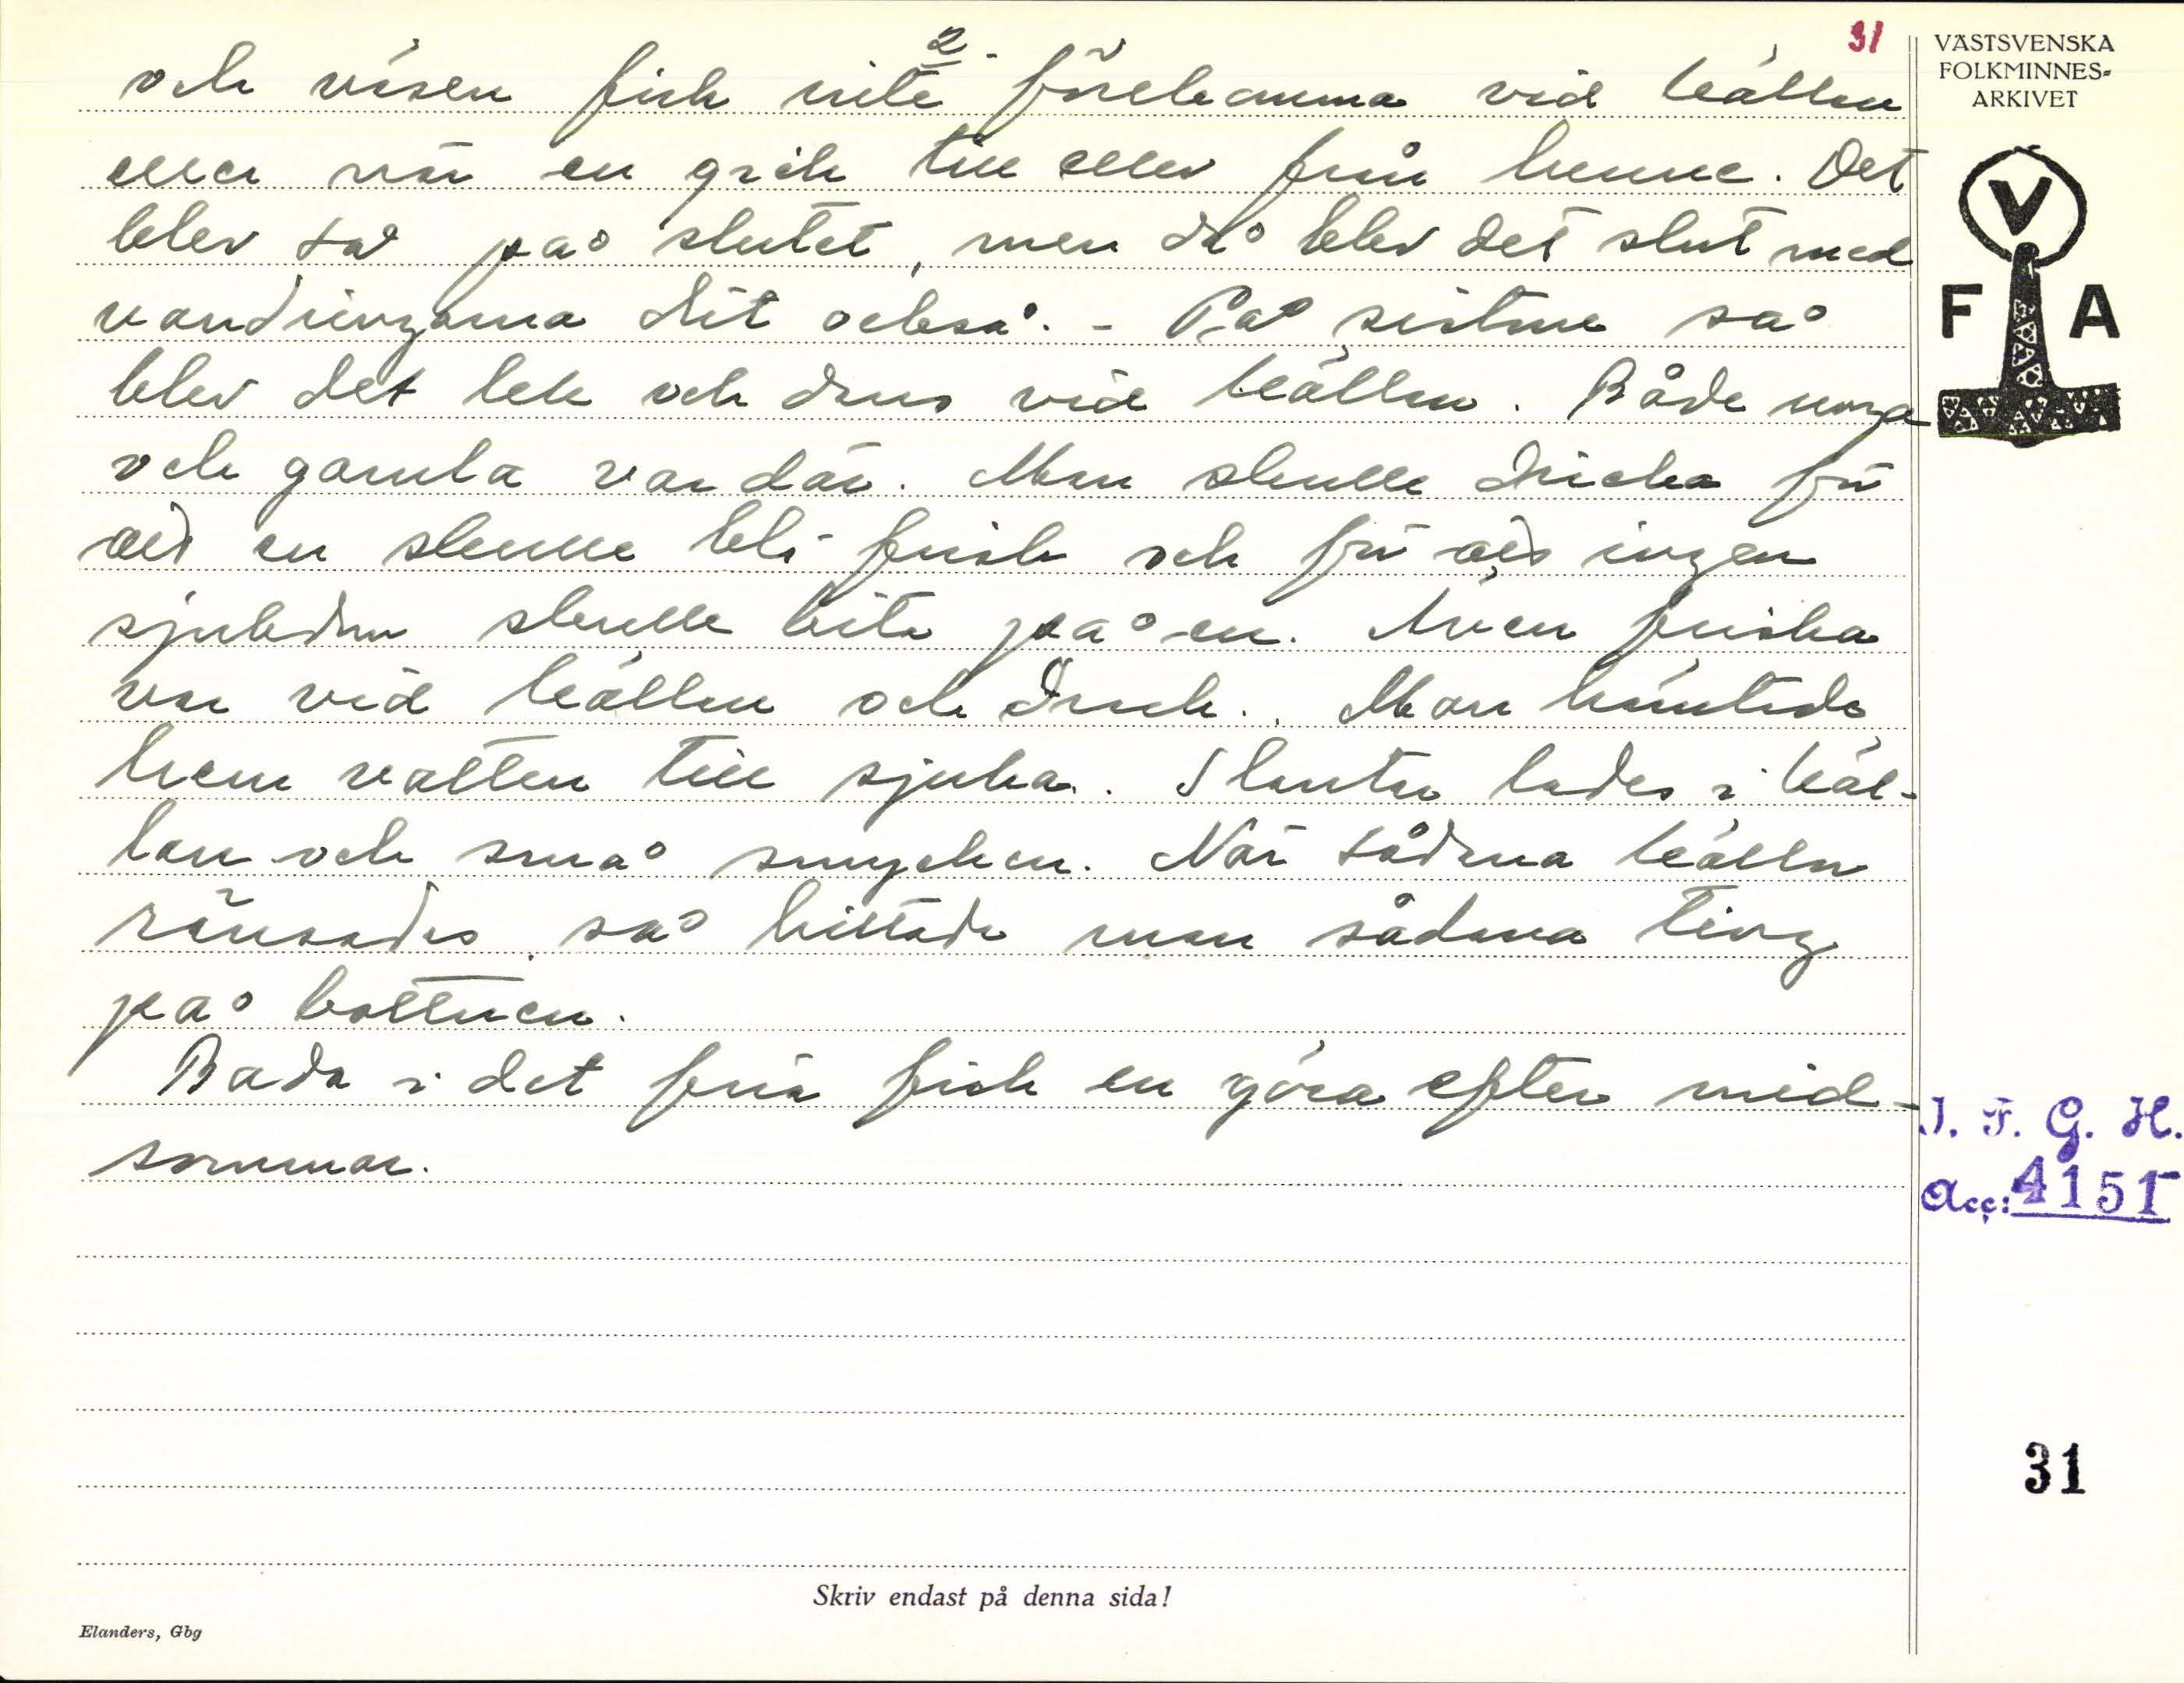 2
31
och väsen fick inte förekomma vid källan
eller när en gick till eller från henne. Det
blev så på slutet, men då blev det slut med
vandringarna dit också. - På sistone så
blev det lek och dans vid källan. Både unga
och gamla var där. Man skulle dricka för
att en skulle bli frisk och för att ingen
sjukdom skulle bita på en. Även friska
var vid källan och drack. Man hämtade
hem vatten till sjuka. Slantar lades i käl-
lan och små smycken. När sådana källor
rensades, så hittade man sådana ting
på bottnen.
Bada i det fria fick en göra efter mid-
sommar.
VÄSTSVENSKA
FOLKMINNES-
ARKIVET
V
F A
I. F. G. H.
Acc: 4151
31
Skriv endast på denna sida!
Elanders, Gbg